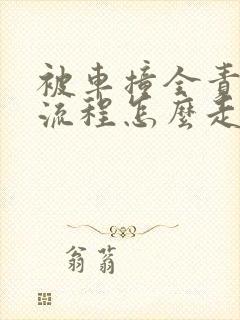 被車撞全責
流程怎麼走
翁蓊